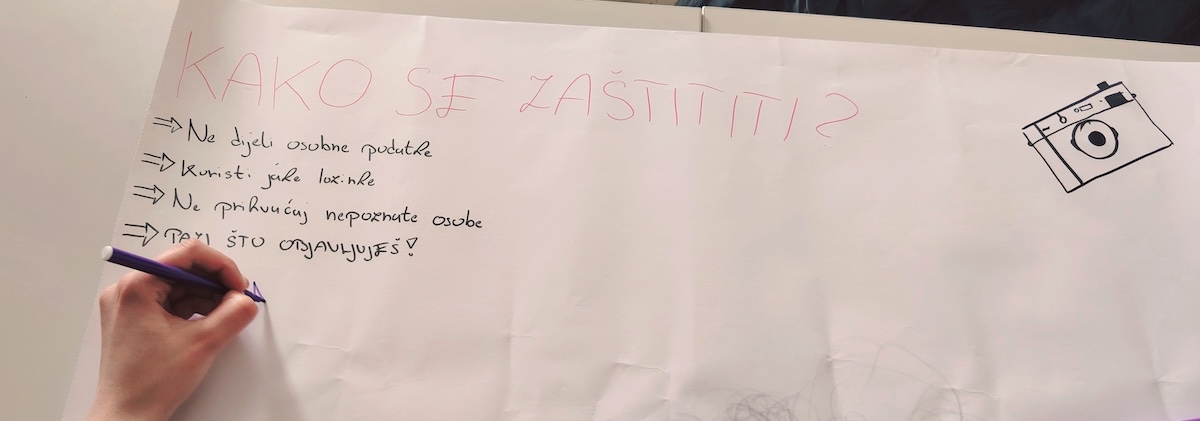 KAKO SE ZAŠTITITI?
⇒ Ne dijeli osobne podatke
⇒ Koristi jake lozinke
⇒ Ne prihvaćaj nepoznate osobe
⇒ PAZI ŠTO OBJAVLJUJEŠ!